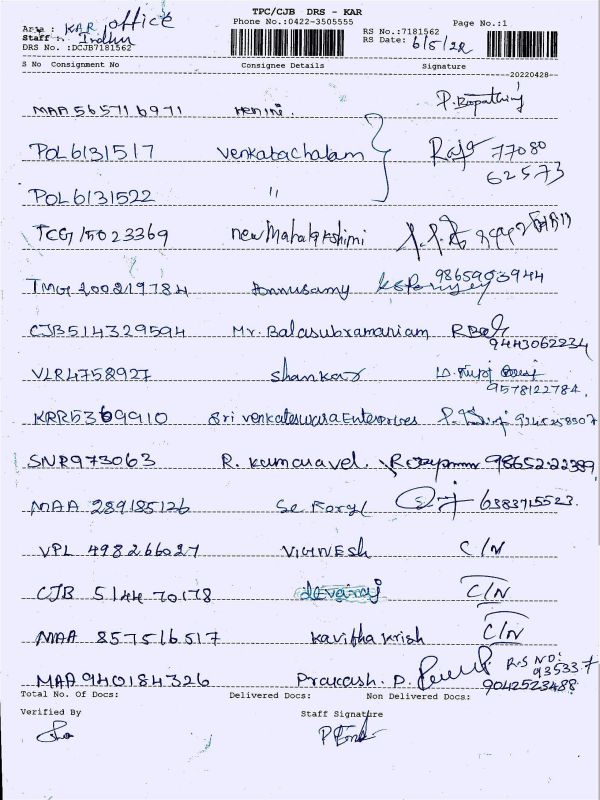 TPC/CJB DRS - KAR
Area : KAR office
Phone No.:0422-3505555
Page No.:1
Staff :
RS No.:7181562
DRS No. :DCJB7181562
RS Date: 6/5/22
S No Consignment No Consignee Details Signature
20220428
MAA 565716971
POL6131517 Venkatachalam Raja 77080
62573
POL 6131522 "
TCG 15023369 new Mahalakshimi
TMG 200219784 ponnusamy 9865903944
CJB514329594 Mr. Balasubramaniam
9443062234
VLR4758927 shankar
9578122784
KRR5369910 Sri Venkateswara Enterprises
SNR973063 R. Kumaravel. 9865222389
MAA 289185126 6383715523
VPL 498266027 VIGNESh C/N
CJB 514470178 devaraj C/N
MAA 857516517 Kavitha Krish C/N
MAA 940184326 Prakash. P. R.S NO:
935337
9042523488
Total No. Of Docs: Delivered Docs: Non Delivered Docs:
Verified By Staff Signature